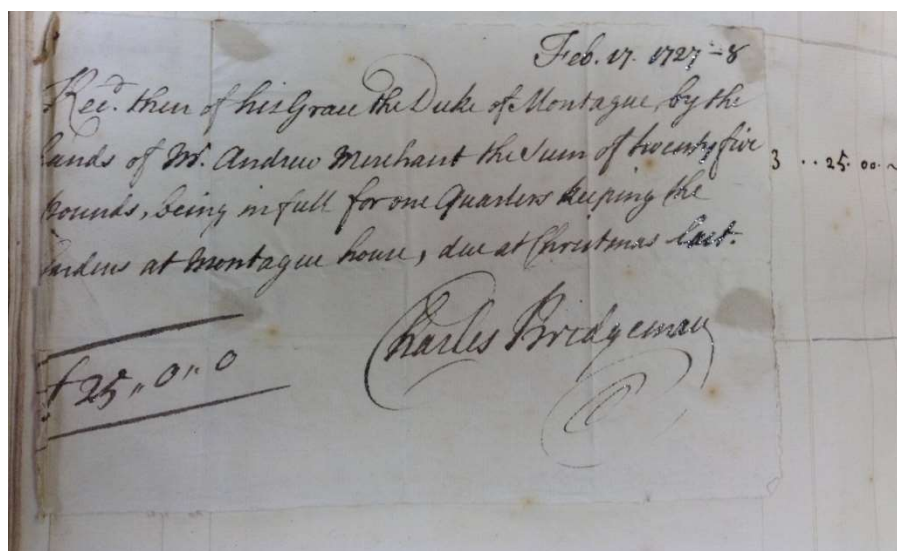 Feb. 17. 1727-8
Rec.d then of his Grace the Duke of Montague, by the
hands of Mr. Andrew Merchant the Sum of twenty five
pounds, being in full for one Quarters keeping the
Gardens at Montague house, due at Christmas last.
3 .. 25. 00. ~
Charles Bridgeman
£ 25 " 0 " 0